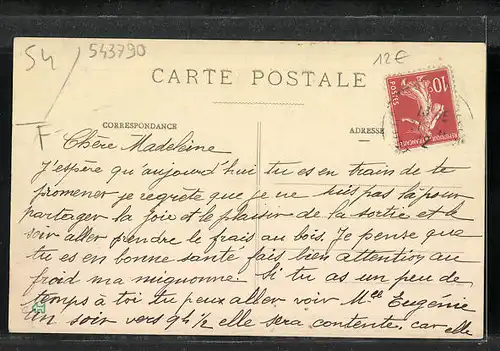 S4
543790
12€
F
CARTE POSTALE
CORRESPONDANCE
ADRESSE
10c
POSTES
Chère Madeleine
J'espère qu'aujourd'hui tu es en train de te
promener je regrète que je ne suis pas là pour
partager la joie et le plaisir de la sortie et le
soir aller prendre le frais au bois. Je pense que
tu es en bonne santé fais bien attention au
froid ma mignonne. Si tu as un peu de
temps à toi tu peux aller voir Melle Eugénie
un soir vers 9h ½ elle sera contente, car elle